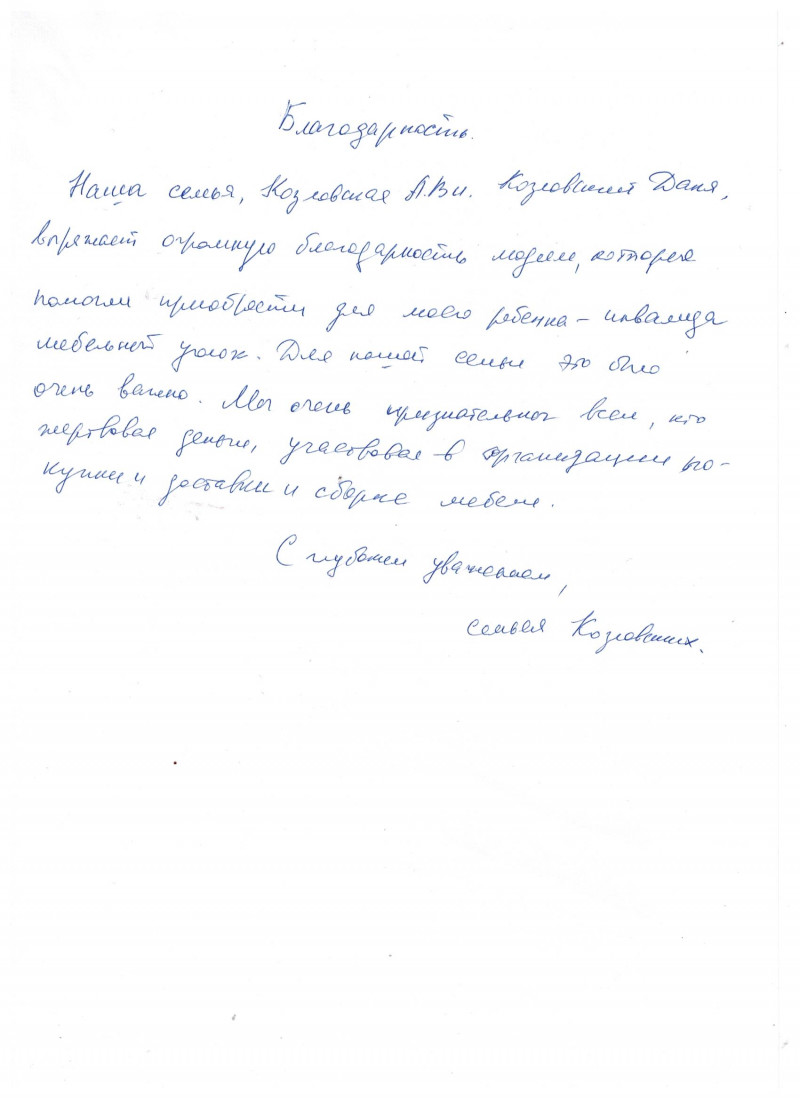 Благодарность.
Наша семья, Козловская А.В и. Козловский Даня,
выражает огромную благодарность людям, которые
помогли приобрести для моего ребенка - инвалида
мебельный уголок. Для нашей семьи это было
очень важно. Мы очень признательны всем, кто
жертвовал деньги, участвовал в организации по-
купки и доставки и сборке мебели.
С глубоким уважением,
семья Козловских.